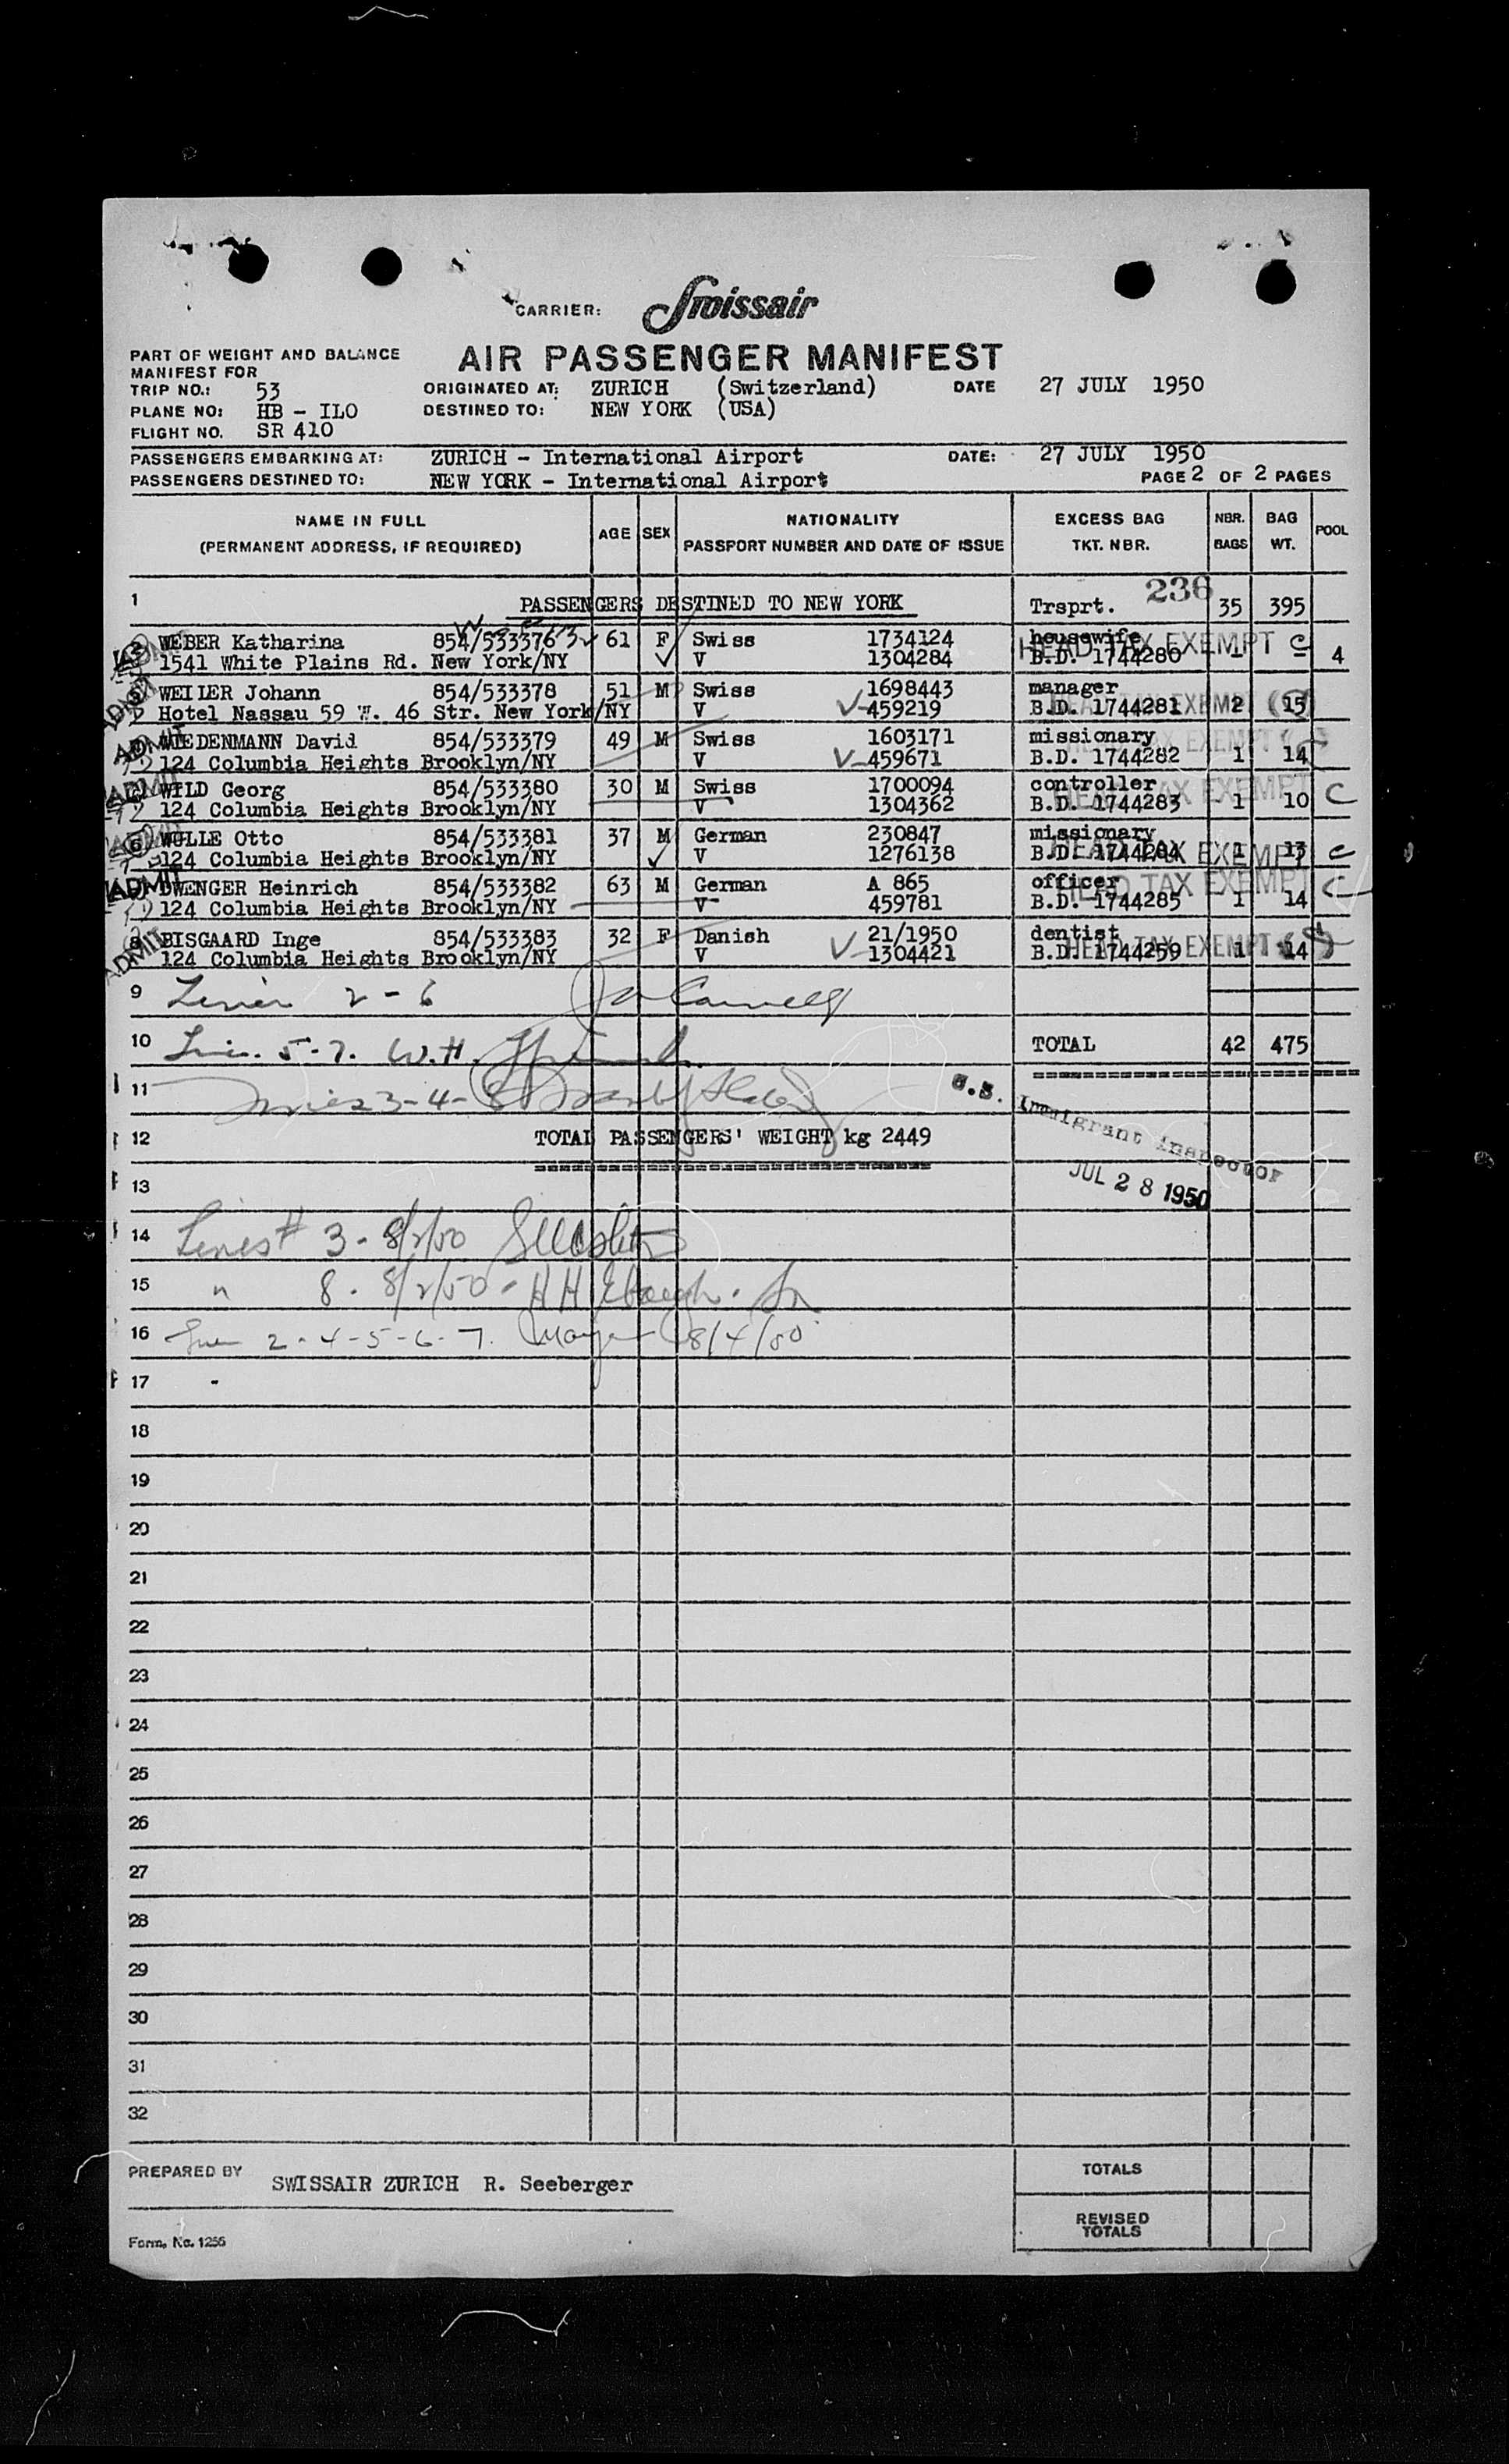 CARRIER: Swissair
AIR PASSENGER MANIFEST
PART OF WEIGHT AND BALANCE
MANIFEST FOR
TRIP NO.: 53 ORIGINATED AT: ZURICH (Switzerland) DATE 27 JULY 1950
PLANE NO: HB - ILO DESTINED TO: NEW YORK (USA)
FLIGHT NO. SR 410
PASSENGERS EMBARKING AT: ZURICH - International Airport DATE: 27 JULY 1950
PASSENGERS DESTINED TO: NEW YORK - International Airport PAGE 2 OF 2 PAGES
NAME IN FULL AGE SEX NATIONALITY EXCESS BAG NBR. BAG POOL
(PERMANENT ADDRESS, IF REQUIRED) PASSPORT NUMBER AND DATE OF ISSUE TKT. NBR. BAGS WT.
236
1 PASSENGERS DESTINED TO NEW YORK Trsprt. 35 395
WEBER Katharina 854/533376 61 F Swiss 1734124 housewife
HEAD TAX EXEMPT C
1541 White Plains Rd. New York/NY V 1304284 B.D. 1744280 - - 4
ADMIT WEILER Johann 854/533378 51 M Swiss 1698443 manager
HEAD TAX EXEMPT
Hotel Nassau 59 W. 46 Str. New York/NY V 459219 B.D. 1744281 2 15
ADMIT WIEDENMANN David 854/533379 49 M Swiss 1603171 missionary
HEAD TAX EXEMPT
124 Columbia Heights Brooklyn/NY V 459671 B.D. 1744282 1 14
ADMIT WILD Georg 854/533380 30 M Swiss 1700094 controller
HEAD TAX EXEMPT C
124 Columbia Heights Brooklyn/NY V 1304362 B.D. 1744283 1 10
ADMIT 6 WULLE Otto 854/533381 37 M German 230847 missionary
HEAD TAX EXEMPT C
124 Columbia Heights Brooklyn/NY V 1276138 B.D. 1744284 1 13
ADMIT DWENGER Heinrich 854/533382 63 M German A 865 officer
HEAD TAX EXEMPT C
124 Columbia Heights Brooklyn/NY V 459781 B.D. 1744285 1 14
ADMIT 8 BISGAARD Inge 854/533383 32 F Danish 21/1950 dentist
HEAD TAX EXEMPT
124 Columbia Heights Brooklyn/NY V 1304421 B.D. 1744259 1 14
9 2 - 6
10 5-7. W.H. TOTAL 42 475
11 3-4-8
U.S. Immigrant Inspector
12 TOTAL PASSENGERS' WEIGHT kg 2449
JUL 28 1950
13
14 Lines # 3 - 8/2/50
15 " 8. 8/2/50 -
16 2-4-5-6-7. 8/4/50
17
18
19
20
21
22
23
24
25
26
27
28
29
30
31
32
PREPARED BY SWISSAIR ZURICH R. Seeberger TOTALS
REVISED
TOTALS
Form. No. 1256